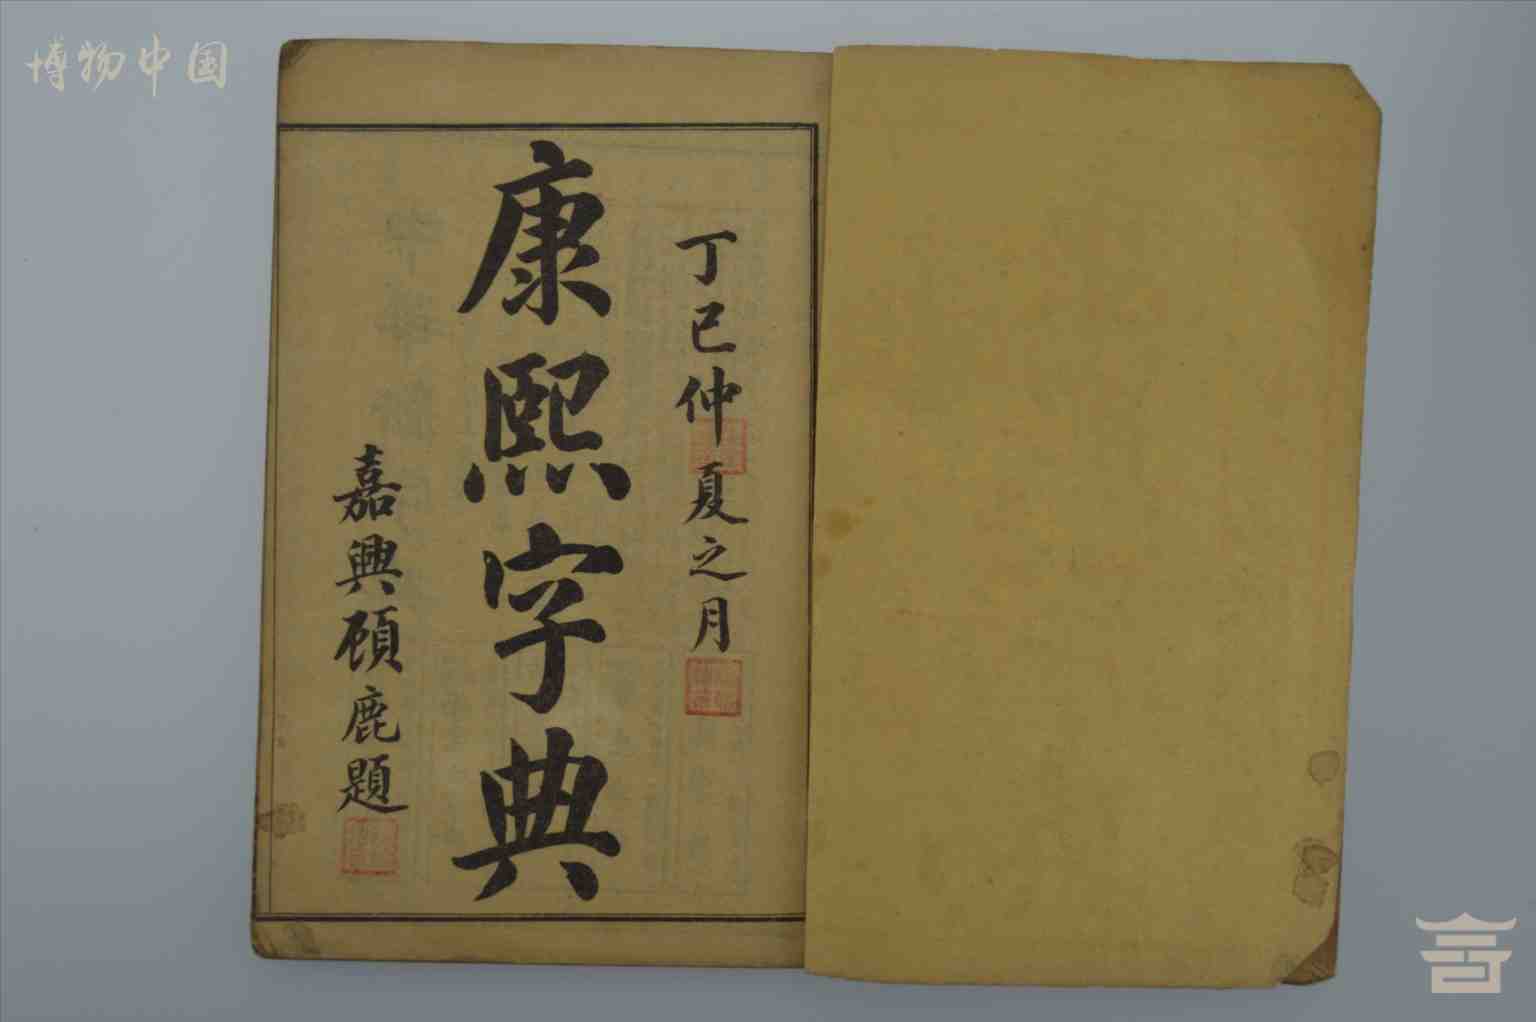 博物中国
丁巳仲夏之月
康熙字典
嘉興顧鹿題